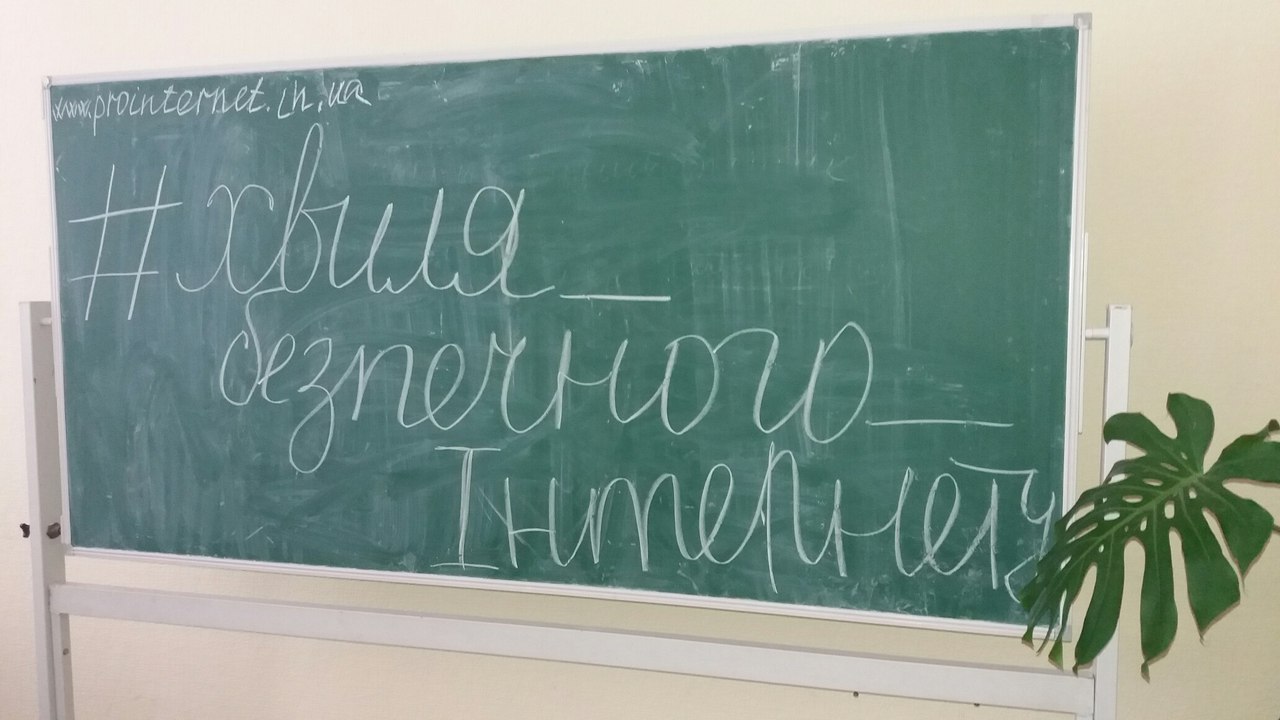 www.prointernet.in.ua
#хвиля_
безпечного_
Інтернету